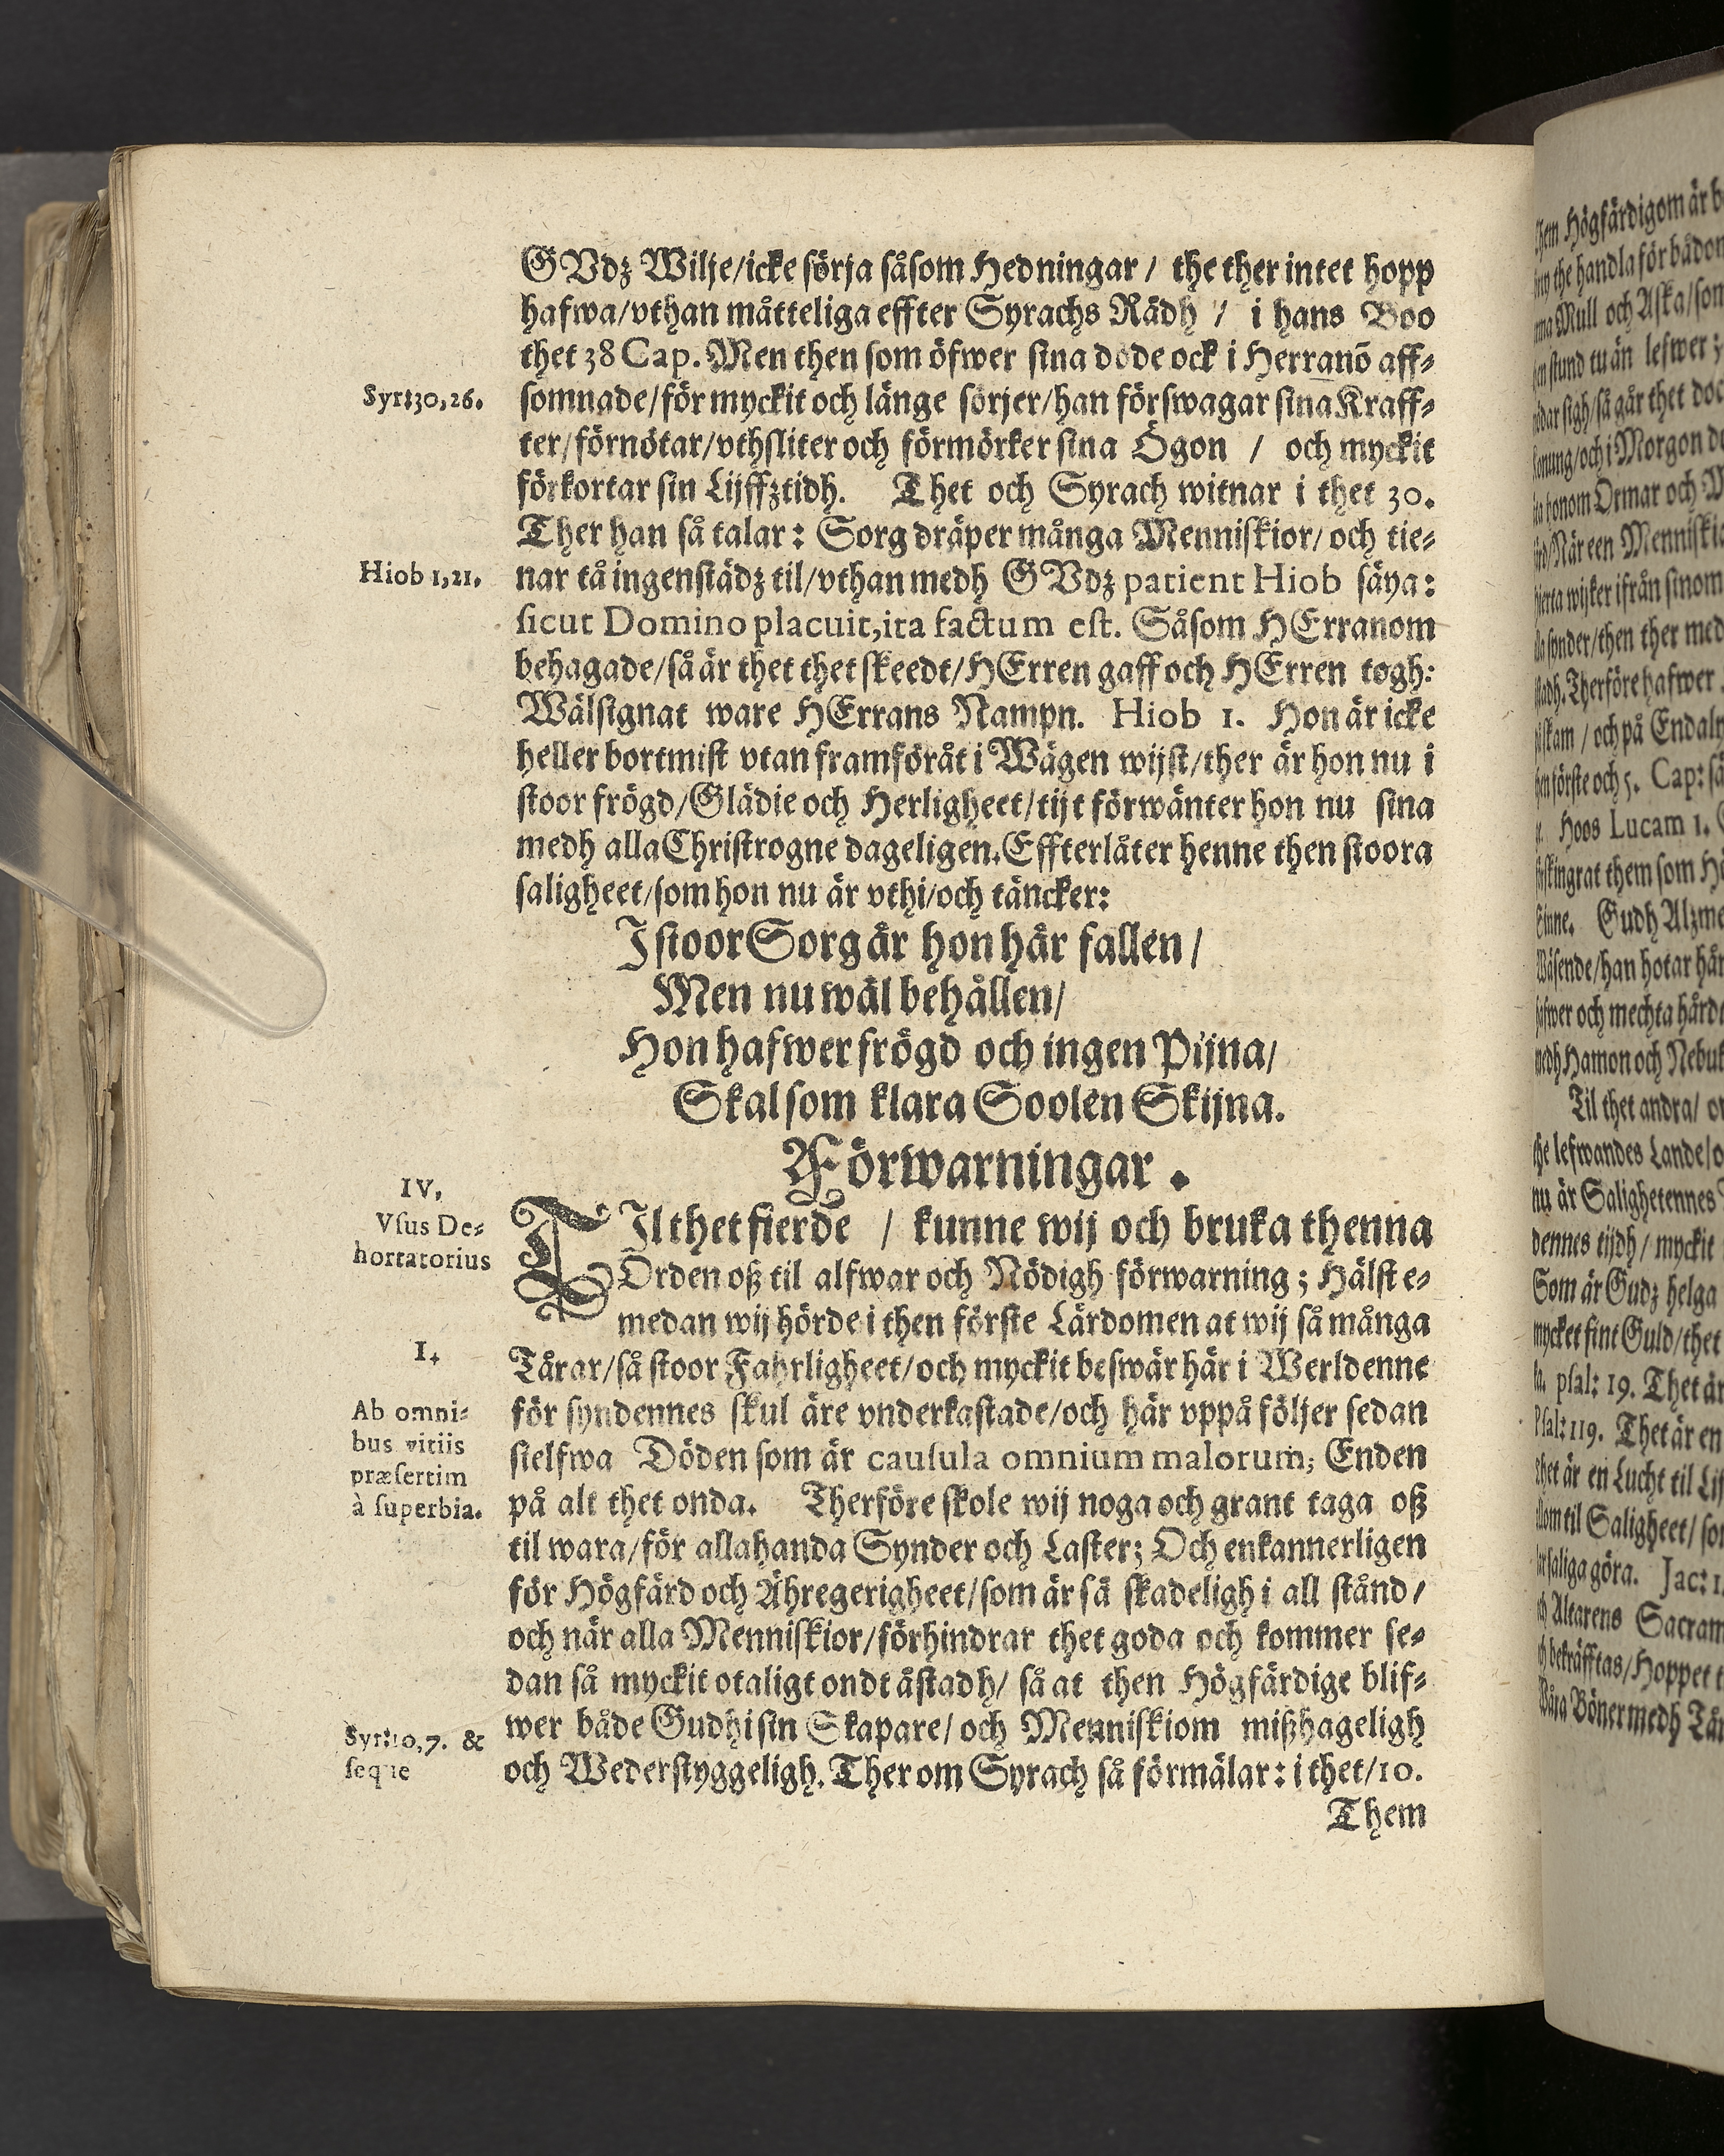 GVdz Wilje/icke sörja såsom Hedningar / the ther intet hopp
hafwa/vthan måtteliga effter Syrachs Rådh / i hans Boo
thet 38 Cap. Men then som öfwer sina döde ock i Herranō aff-
Syr:30,26.
somnade/för myckit och länge sörjer/han förswagar sina Kraff-
ter/förnötar/vthsliter och förmörker sina Ögon / och myckit
förkortar sin Lijffztidh. Thet och Syrach witnar i thet 30.
Ther han så talar: Sorg dräper många Menniskior/ och tie-
Hiob 1,21.
nar tå ingenstädz til/vthan medh GVdz patient Hiob säya:
sicut Domino placuit,ita factum est. Såsom HErranom
behagade/så är thet thet skeedt/HErren gaff och HErren togh:
Wälsignat ware HErrans Nampn. Hiob 1. Hon är icke
heller bortmist vtan framföråt i Wägen wijst/ther är hon nu i
stoor frögd/Glädie och Herligheet/tijt förwänter hon nu sina
medh alla Christrogne dageligen. Effterlåter henne then stoora
saligheet/som hon nu är vthi/och täncker:
I stoor Sorg är hon här fallen /
Men nu wäl behållen/
Hon hafwer frögd och ingen Pijna/
Skal som klara Soolen Skijna.
Förwarningar.
IV.
Vsus De-
hortatorius
TIl thet fierde / kunne wij och bruka thenna
Orden oß til alfwar och Nödigh förwarning; Hälst e-
medan wij hörde i then förste Lärdomen at wij så många
1.
Tårar/så stoor Fahrligheet/och myckit beswär här i Werldenne
Ab omni-
bus vitiis
præsertim
à superbia.
för syndennes skul äre vnderkastade/och här vppå följer sedan
sielfwa Döden som är causula omnium malorum, Enden
på alt thet onda. Therföre skole wij noga och grant taga oß
til wara/för allahanda Synder och Laster; Och enkannerligen
för Högfärd och Ähregerigheet/som är så skadeligh i all stånd/
och när alla Menniskior/förhindrar thet goda och kommer se-
dan så myckit otaligt ondt åstadh/ så at then Högfärdige blif-
Syr:10,7. &
seque
wer både Gudhi sin Skapare/ och Menniskiom mißhageligh
och Wederstyggeligh. Ther om Syrach så förmälar: i thet/10.
Them